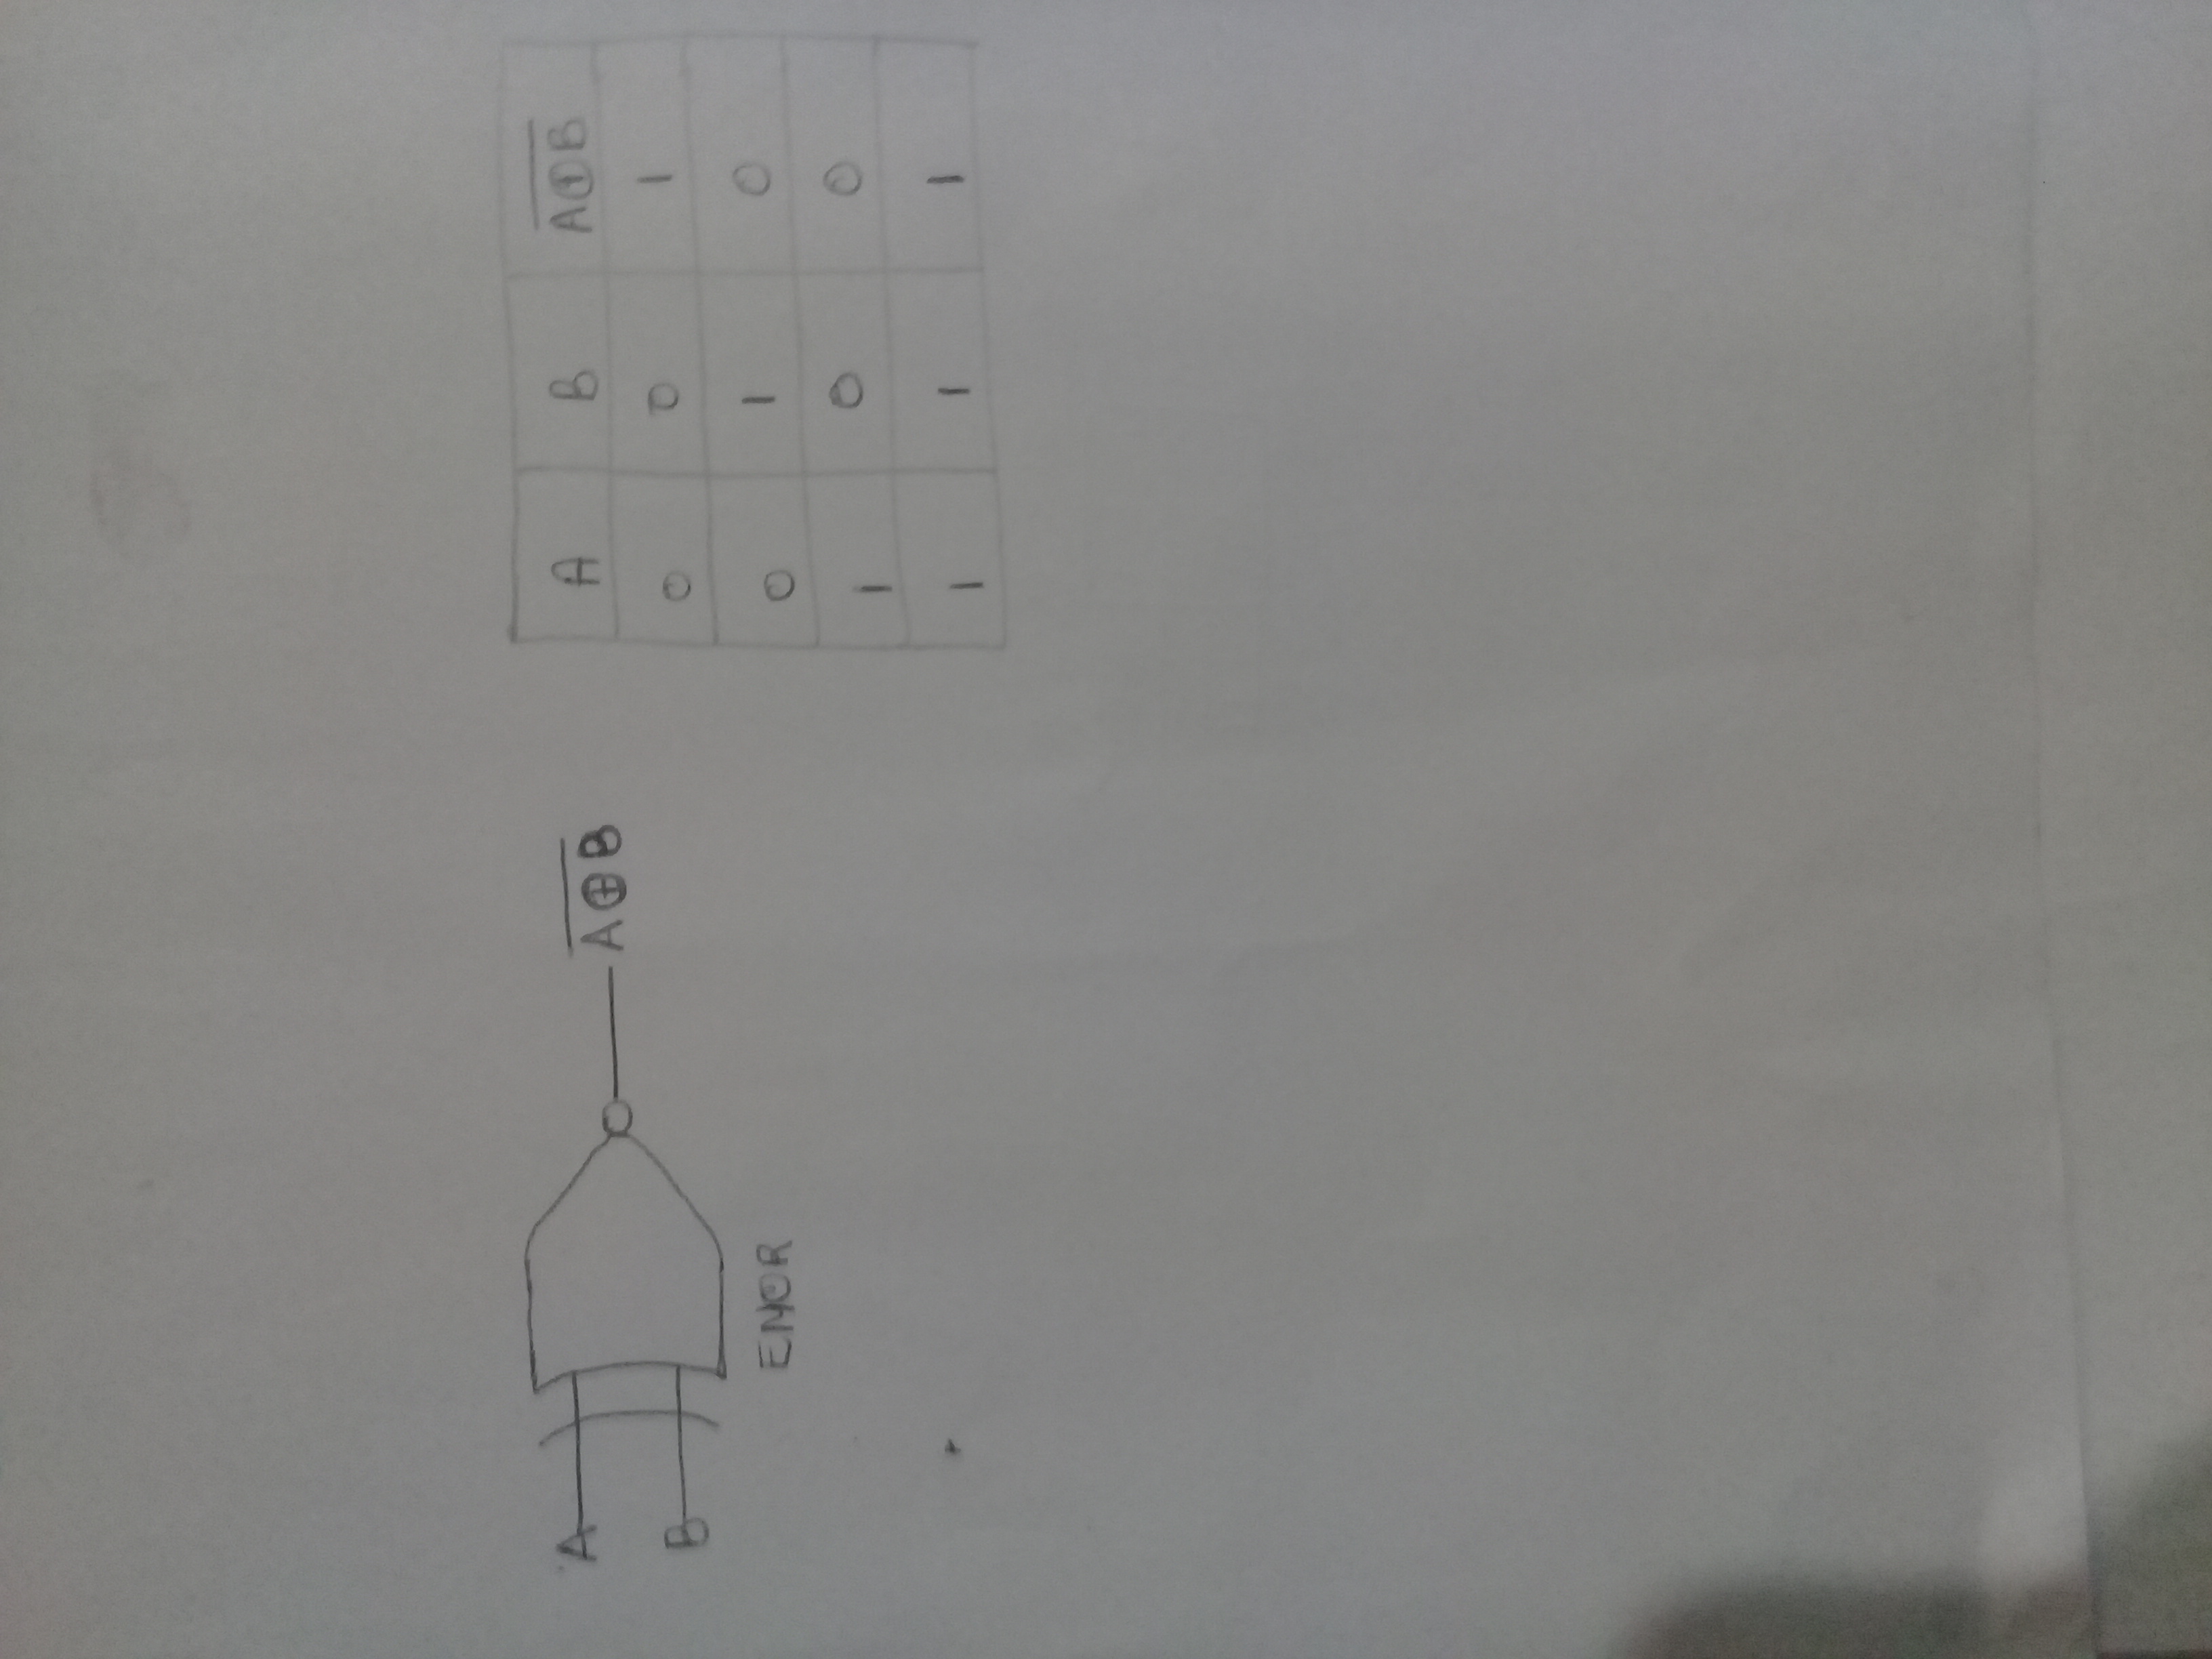 A
B
A⊕B̅
ENOR
A B A̅⊕̅B̅
0 0 1
0 1 0
1 0 0
1 1 1